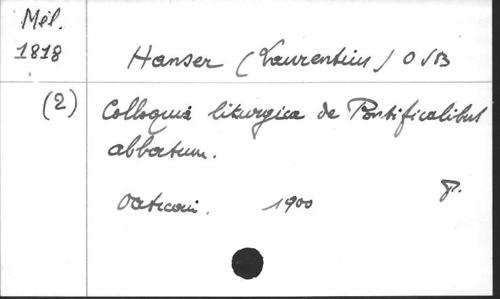 Mél.
1818
Hanser (Laurentius) OSB
(2)
Colloquia liturgica de Pontificalibus
abbatum.
Vaticani. 1900